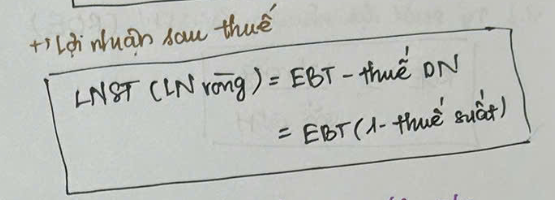 +) Lợi nhuận sau thuế
LNST (LN ròng) = EBT - thuế DN
= EBT (1 - thuế suất)